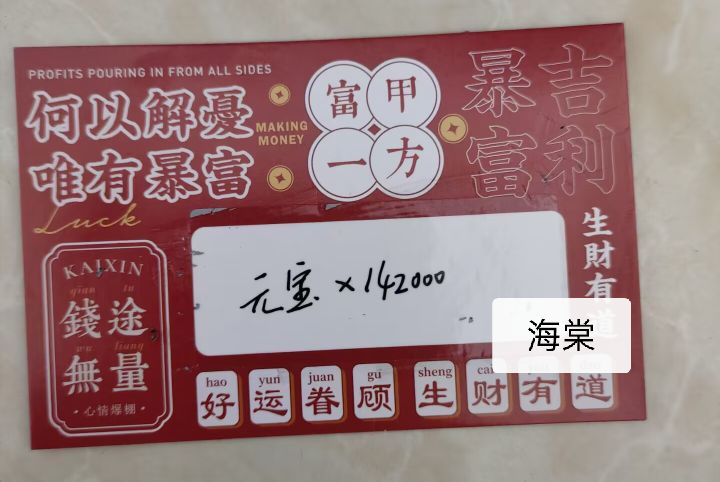 PROFITS POURING IN FROM ALL SIDES
何以解憂
唯有暴富
Luck
MAKING
MONEY
富甲
一方
吉利
暴富
生財有道
元宝×142000
海棠
KAIXIN
qian tu
錢途
wu liang
無量
·心情爆棚·
hao yun juan gu sheng cai you dao
好运眷顾生财有道